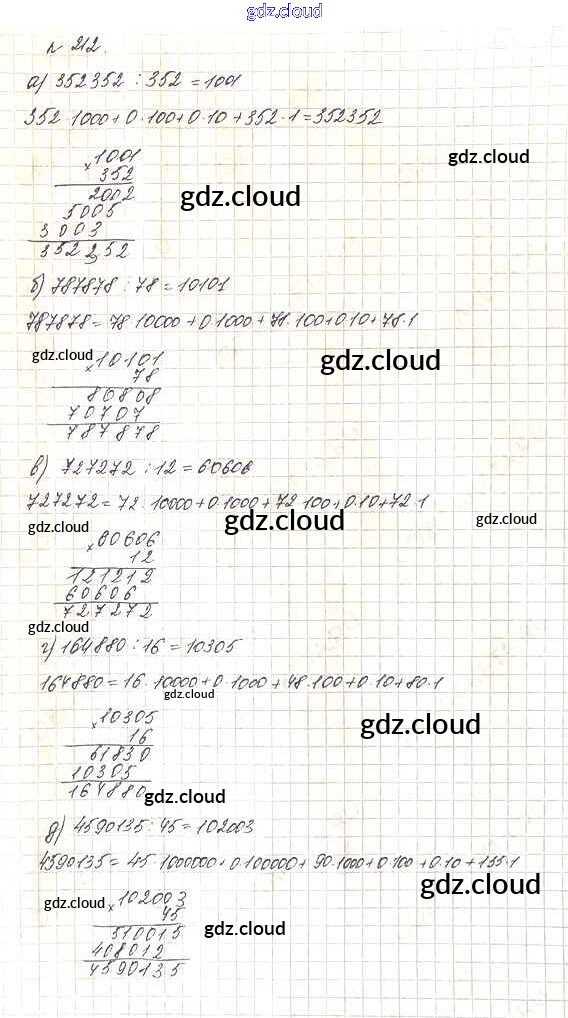 gdz.cloud
№ 212.
а) 352352 : 352 = 1001
352 · 1000 + 0 · 100 + 0 · 10 + 352 · 1 = 352352
gdz.cloud
× 1001
352
gdz.cloud
2002
5005
3003
352352
б) 787878 : 78 = 10101
787878 = 78 · 10000 + 0 · 1000 + 78 · 100 + 0 · 10 + 78 · 1
gdz.cloud × 10101 gdz.cloud
78
80808
70707
787878
в) 727272 : 12 = 60606
727272 = 72 · 10000 + 0 · 1000 + 72 · 100 + 0 · 10 + 72 · 1
gdz.cloud gdz.cloud gdz.cloud
× 60606
12
121212
60606
727272
gdz.cloud
г) 164880 : 16 = 10305
164880 = 16 · 10000 + 0 · 1000 + 48 · 100 + 0 · 10 + 80 · 1
gdz.cloud
× 10305 gdz.cloud
16
61830
10305
164880
gdz.cloud
д) 4590135 : 45 = 102003
4590135 = 45 · 1000000 + 0 · 100000 + 90 · 1000 + 0 · 100 + 0 · 10 + 135 · 1
gdz.cloud
gdz.cloud × 102003
45
510015 gdz.cloud
408012
4590135